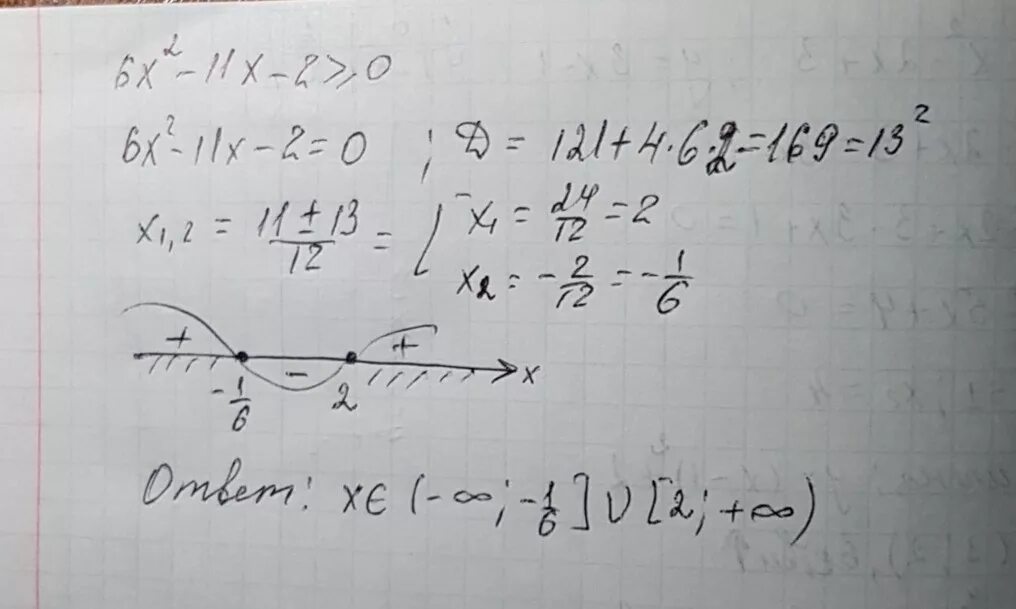 6x² - 11x - 2 ⩾ 0
6x² - 11x - 2 = 0 ; D = 121 + 4·6·2 = 169 = 13²
x₁,₂ = (11 ± 13)/12 = [ x₁ = 24/12 = 2
x₂ = -2/12 = -1/6
+ - + x
-1/6 2
Ответ: x ∈ (-∞; -1/6] ∪ [2; +∞)